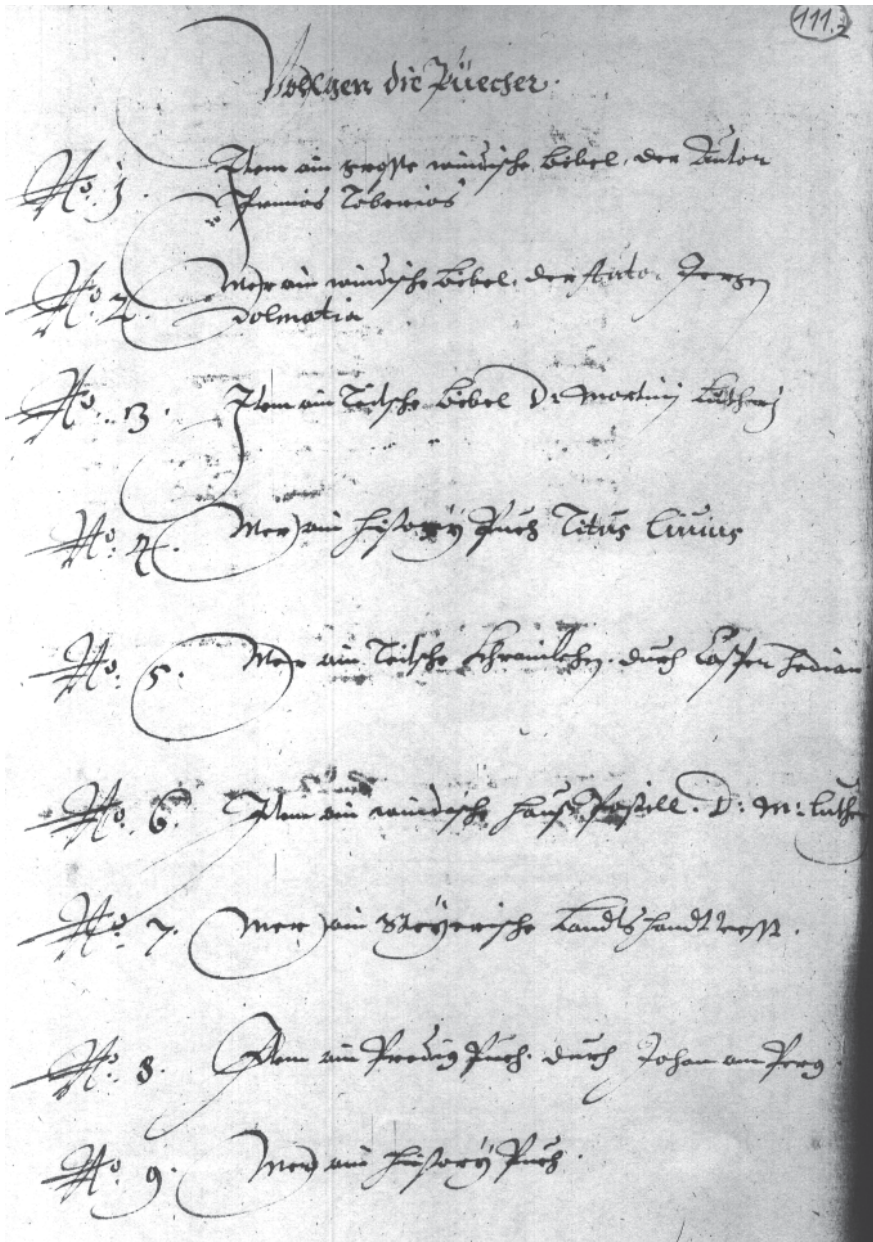 111.2
Volgen die Püecher.
No. 1 Item ain grosse windische Bibel, der Autor
Primus Toberius
No. 2. Mer ain windische Bibel, der Autor Jergen
Dolmatin
No. 3. Item ain Teitsche Bibel D. Martinj Lutherj
No. 4. Mer ain History Puech Titus Liuius
No. 5. Mer ain Teitsche durch Caspar Hedian
No. 6. Item ain windische Hauß Postill. D: M: Luther
No. 7. Mer ain Steyerische Landts Handtvesst.
No. 8. Item ain Predig Puch. durch Johan am Perg
No. 9. Mer ain History Puech.